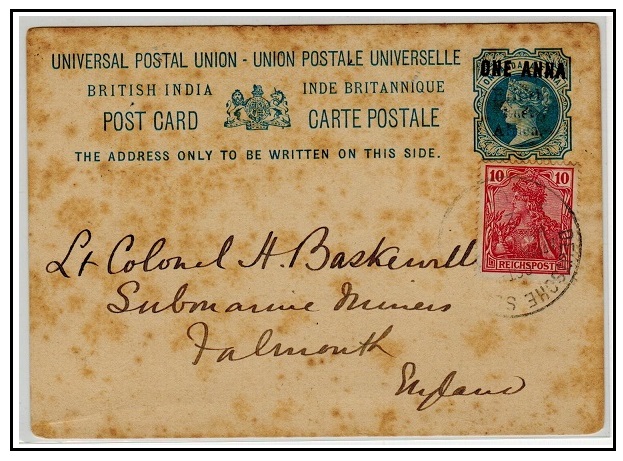 UNIVERSAL POSTAL UNION - UNION POSTALE UNIVERSELLE
BRITISH INDIA INDE BRITANNIQUE
POST CARD CARTE POSTALE
THE ADDRESS ONLY TO BE WRITTEN ON THIS SIDE.
ONE ANNA
10 10
REICHSPOST
Lt Colonel H. Baskerville
Submarine Miners
Falmouth
England